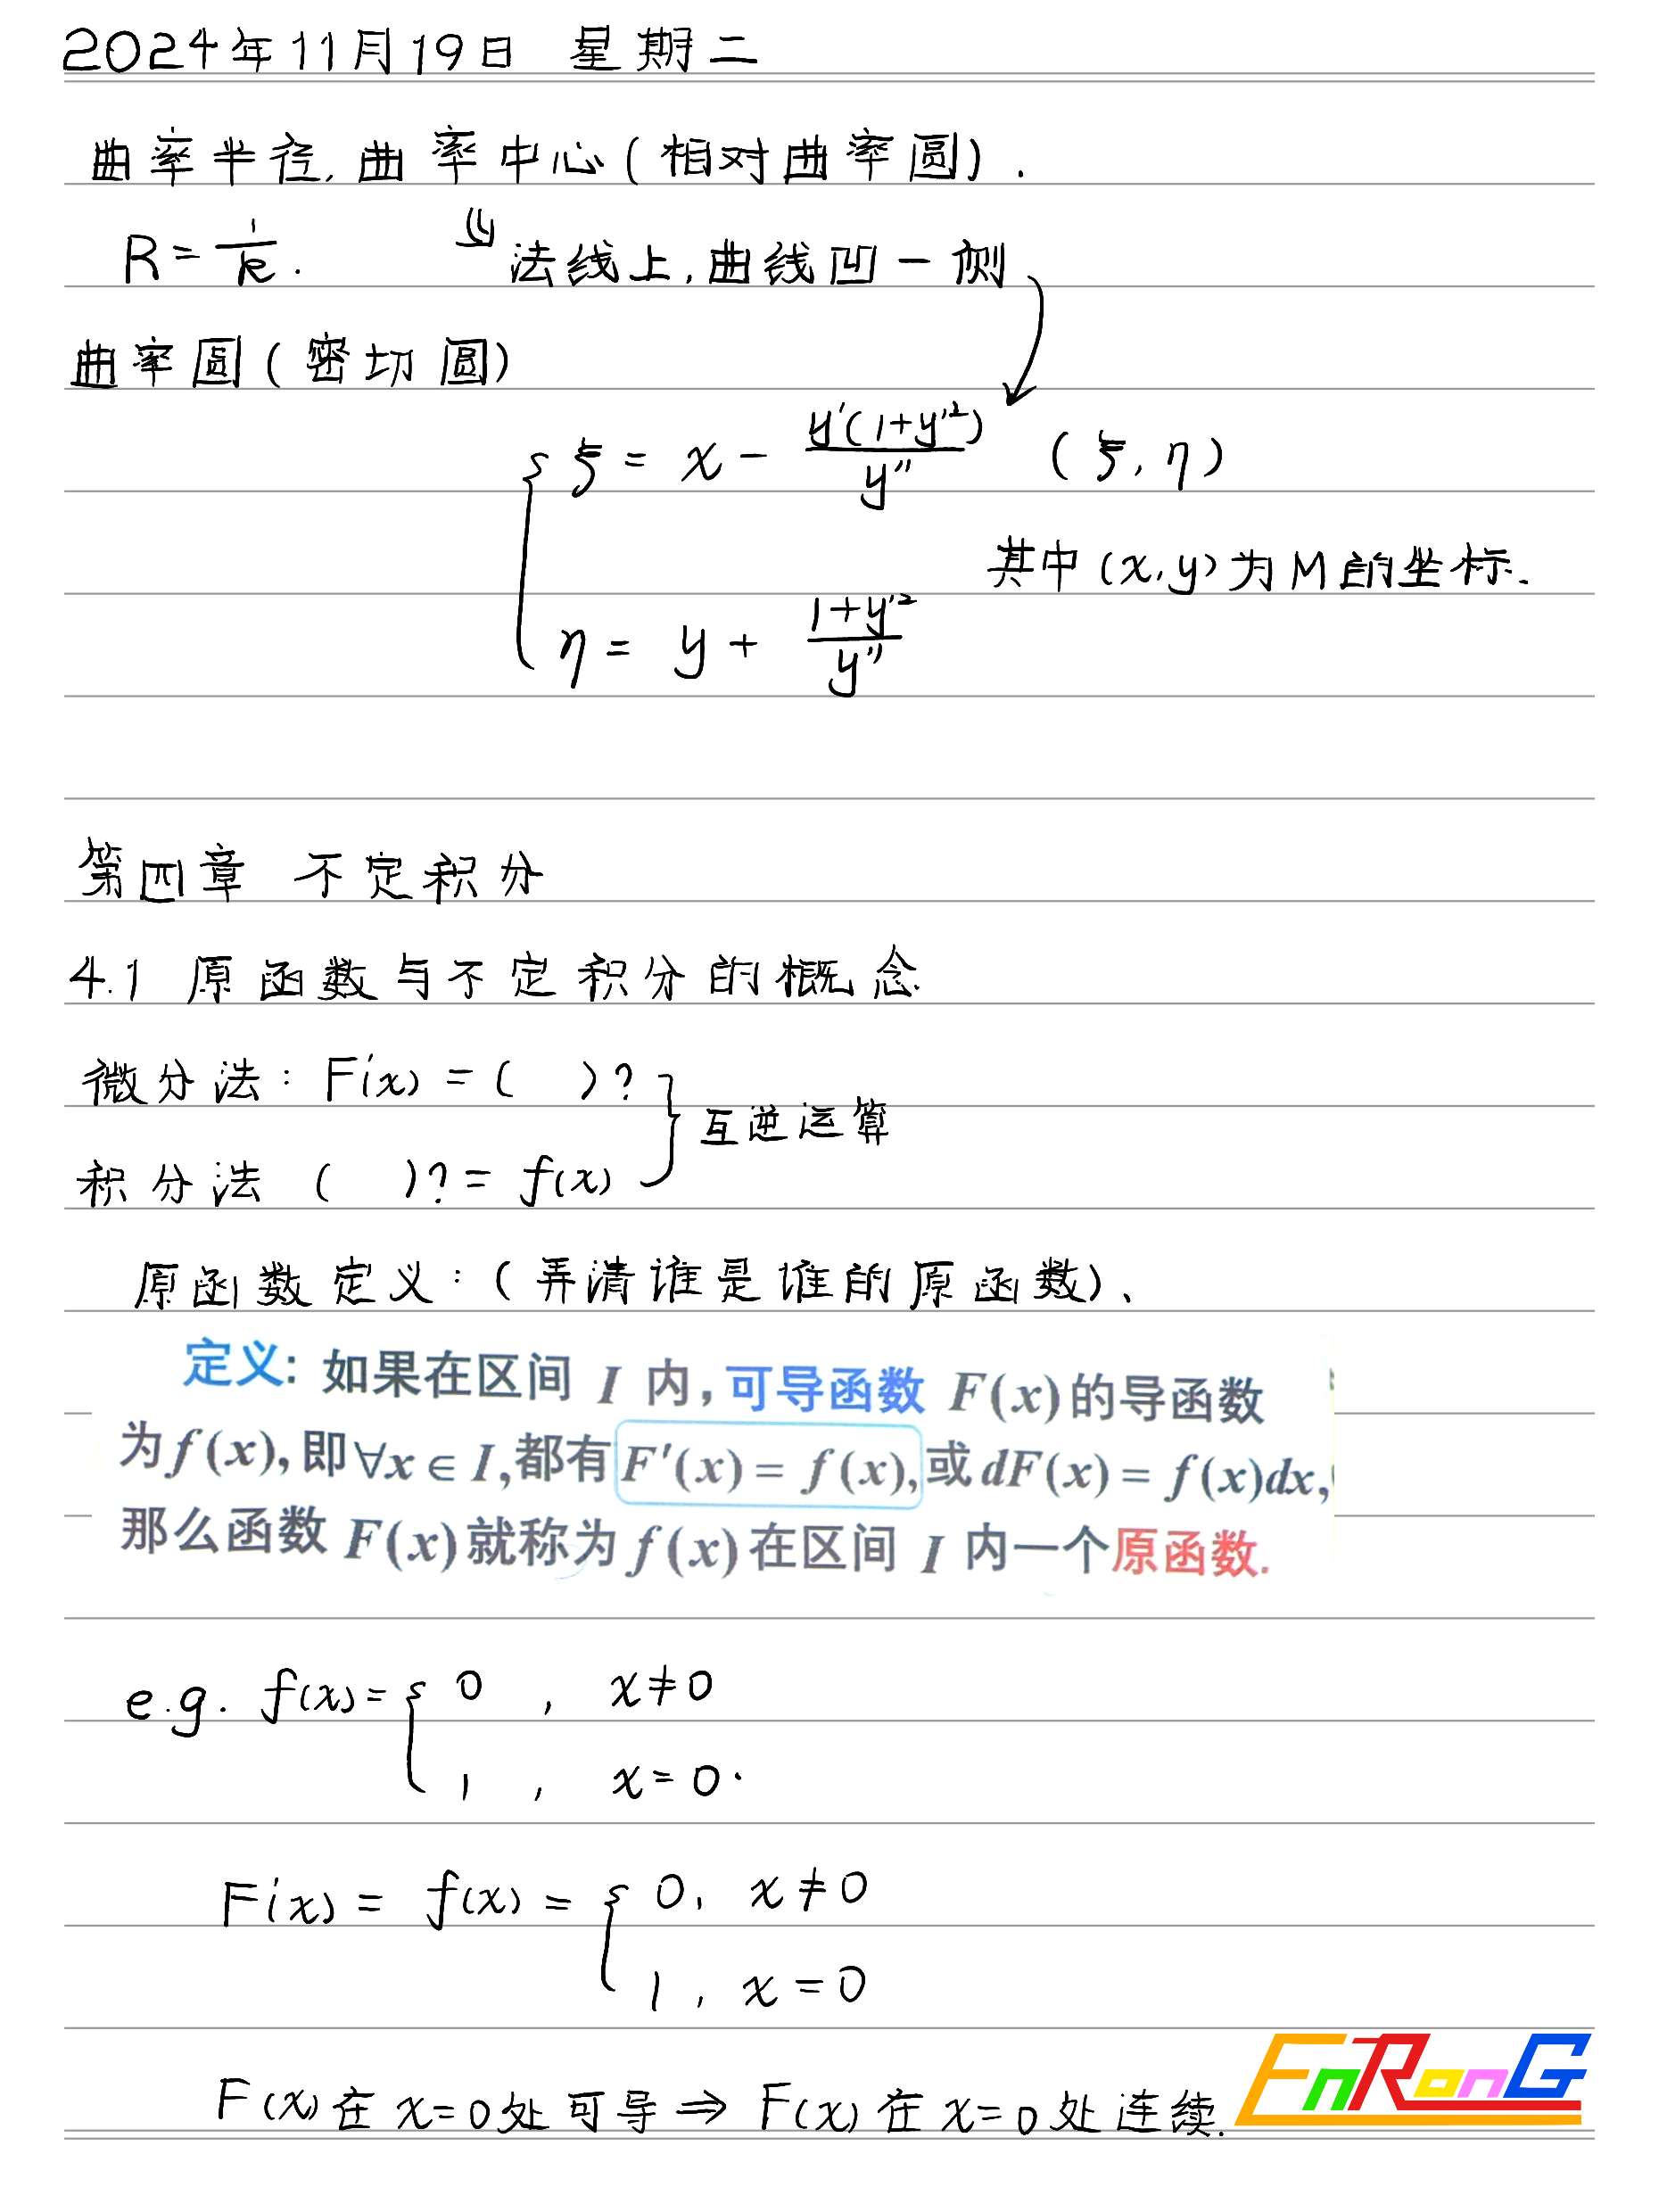 2024年11月19日 星期二
曲率半径, 曲率中心(相对曲率圆).
R=1/k. ⇓ 法线上,曲线凹一侧
曲率圆(密切圆)
ξ = x - y'(1+y'²)/y'' (ξ, η)
其中(x,y)为M的坐标.
η = y + (1+y'²)/y''
第四章 不定积分
4.1 原函数与不定积分的概念
微分法: F'(x) = ( )?
互逆运算
积分法 ( )? = f(x)
原函数定义:(弄清谁是谁的原函数)、
定义: 如果在区间 I 内,可导函数 F(x)的导函数
为f(x), 即∀x∈I,都有F′(x)= f(x),或dF(x)= f(x)dx,
那么函数 F(x)就称为f(x)在区间 I 内一个原函数.
e.g. f(x)={ 0 , x≠0
1 , x=0.
F'(x) = f(x) = { 0, x≠0
1, x=0
F(x)在 x=0处可导 ⇒ F(x)在x=0处连续.
EnRonG